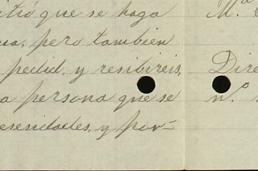 itió que se haga
pero también
pedid, y recibireis,
a persona que se
ecesidades, y por-
M.ª
Dire
n.º